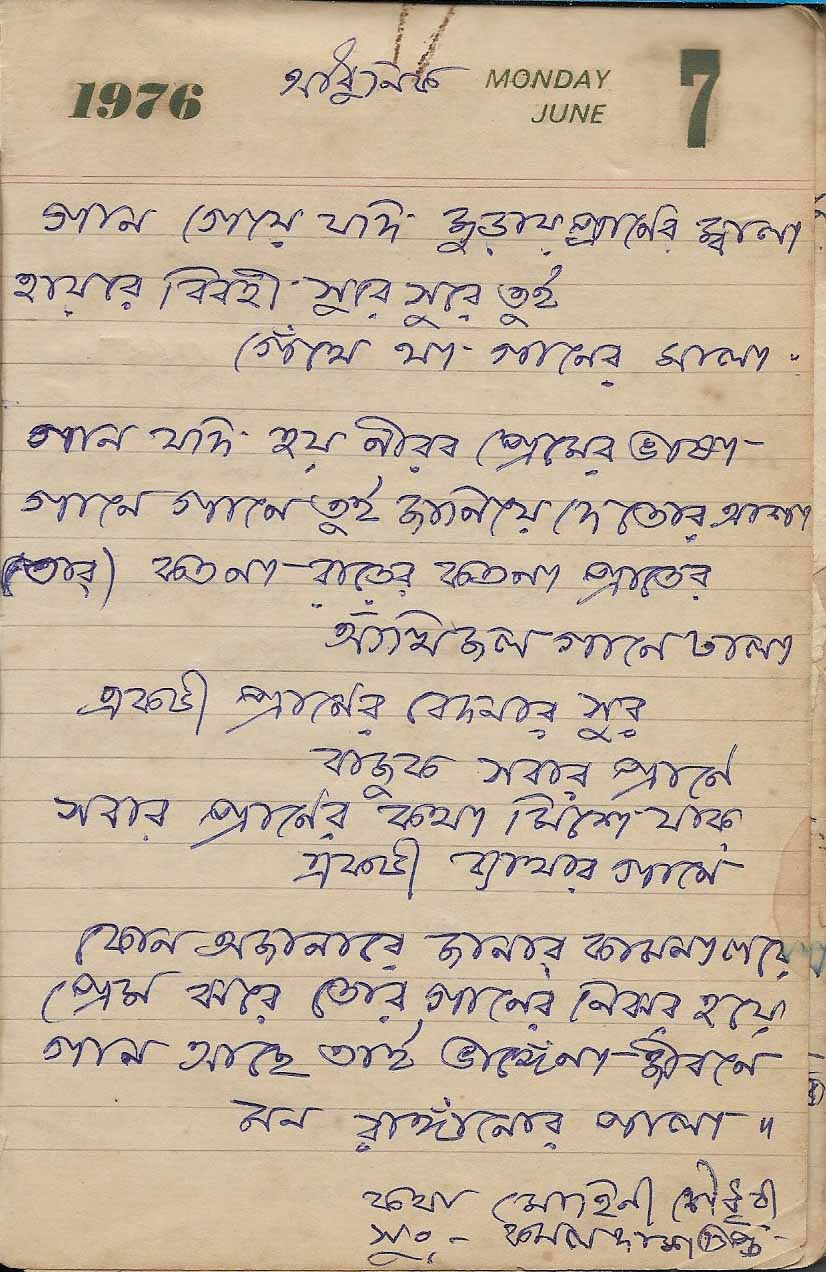 1976 আধুনিক MONDAY JUNE 7
গান গেয়ে যদি জুড়ায় প্রাণের জ্বালা
হায়রে বিরহী সুরে সুরে তুই
গেঁথে যা গানের মালা
গান যদি হয় নীরব প্রেমের ভাষা
গানে গানে তুই জানিয়ে দে তোর আশা
(তোর) কতনা রাতের কতনা প্রাতের
আঁখিজল গানে ঢালা
একটী প্রাণের বেদনার সুর
বাজুক সবার প্রাণে
সবার প্রাণের কথা মিশে যাক
একটী ব্যাথার গানে
কোন অজানারে জানার কামনা লয়ে
প্রেম ঝরে তোর গানের নিঝর হয়ে
গান আছে তাই ভাঙ্গেনা জীবনে
মন রাঙ্গানোর পালা ॥
কথা মোহিনী চৌধুরী
সুর:- কমল দাশগুপ্ত